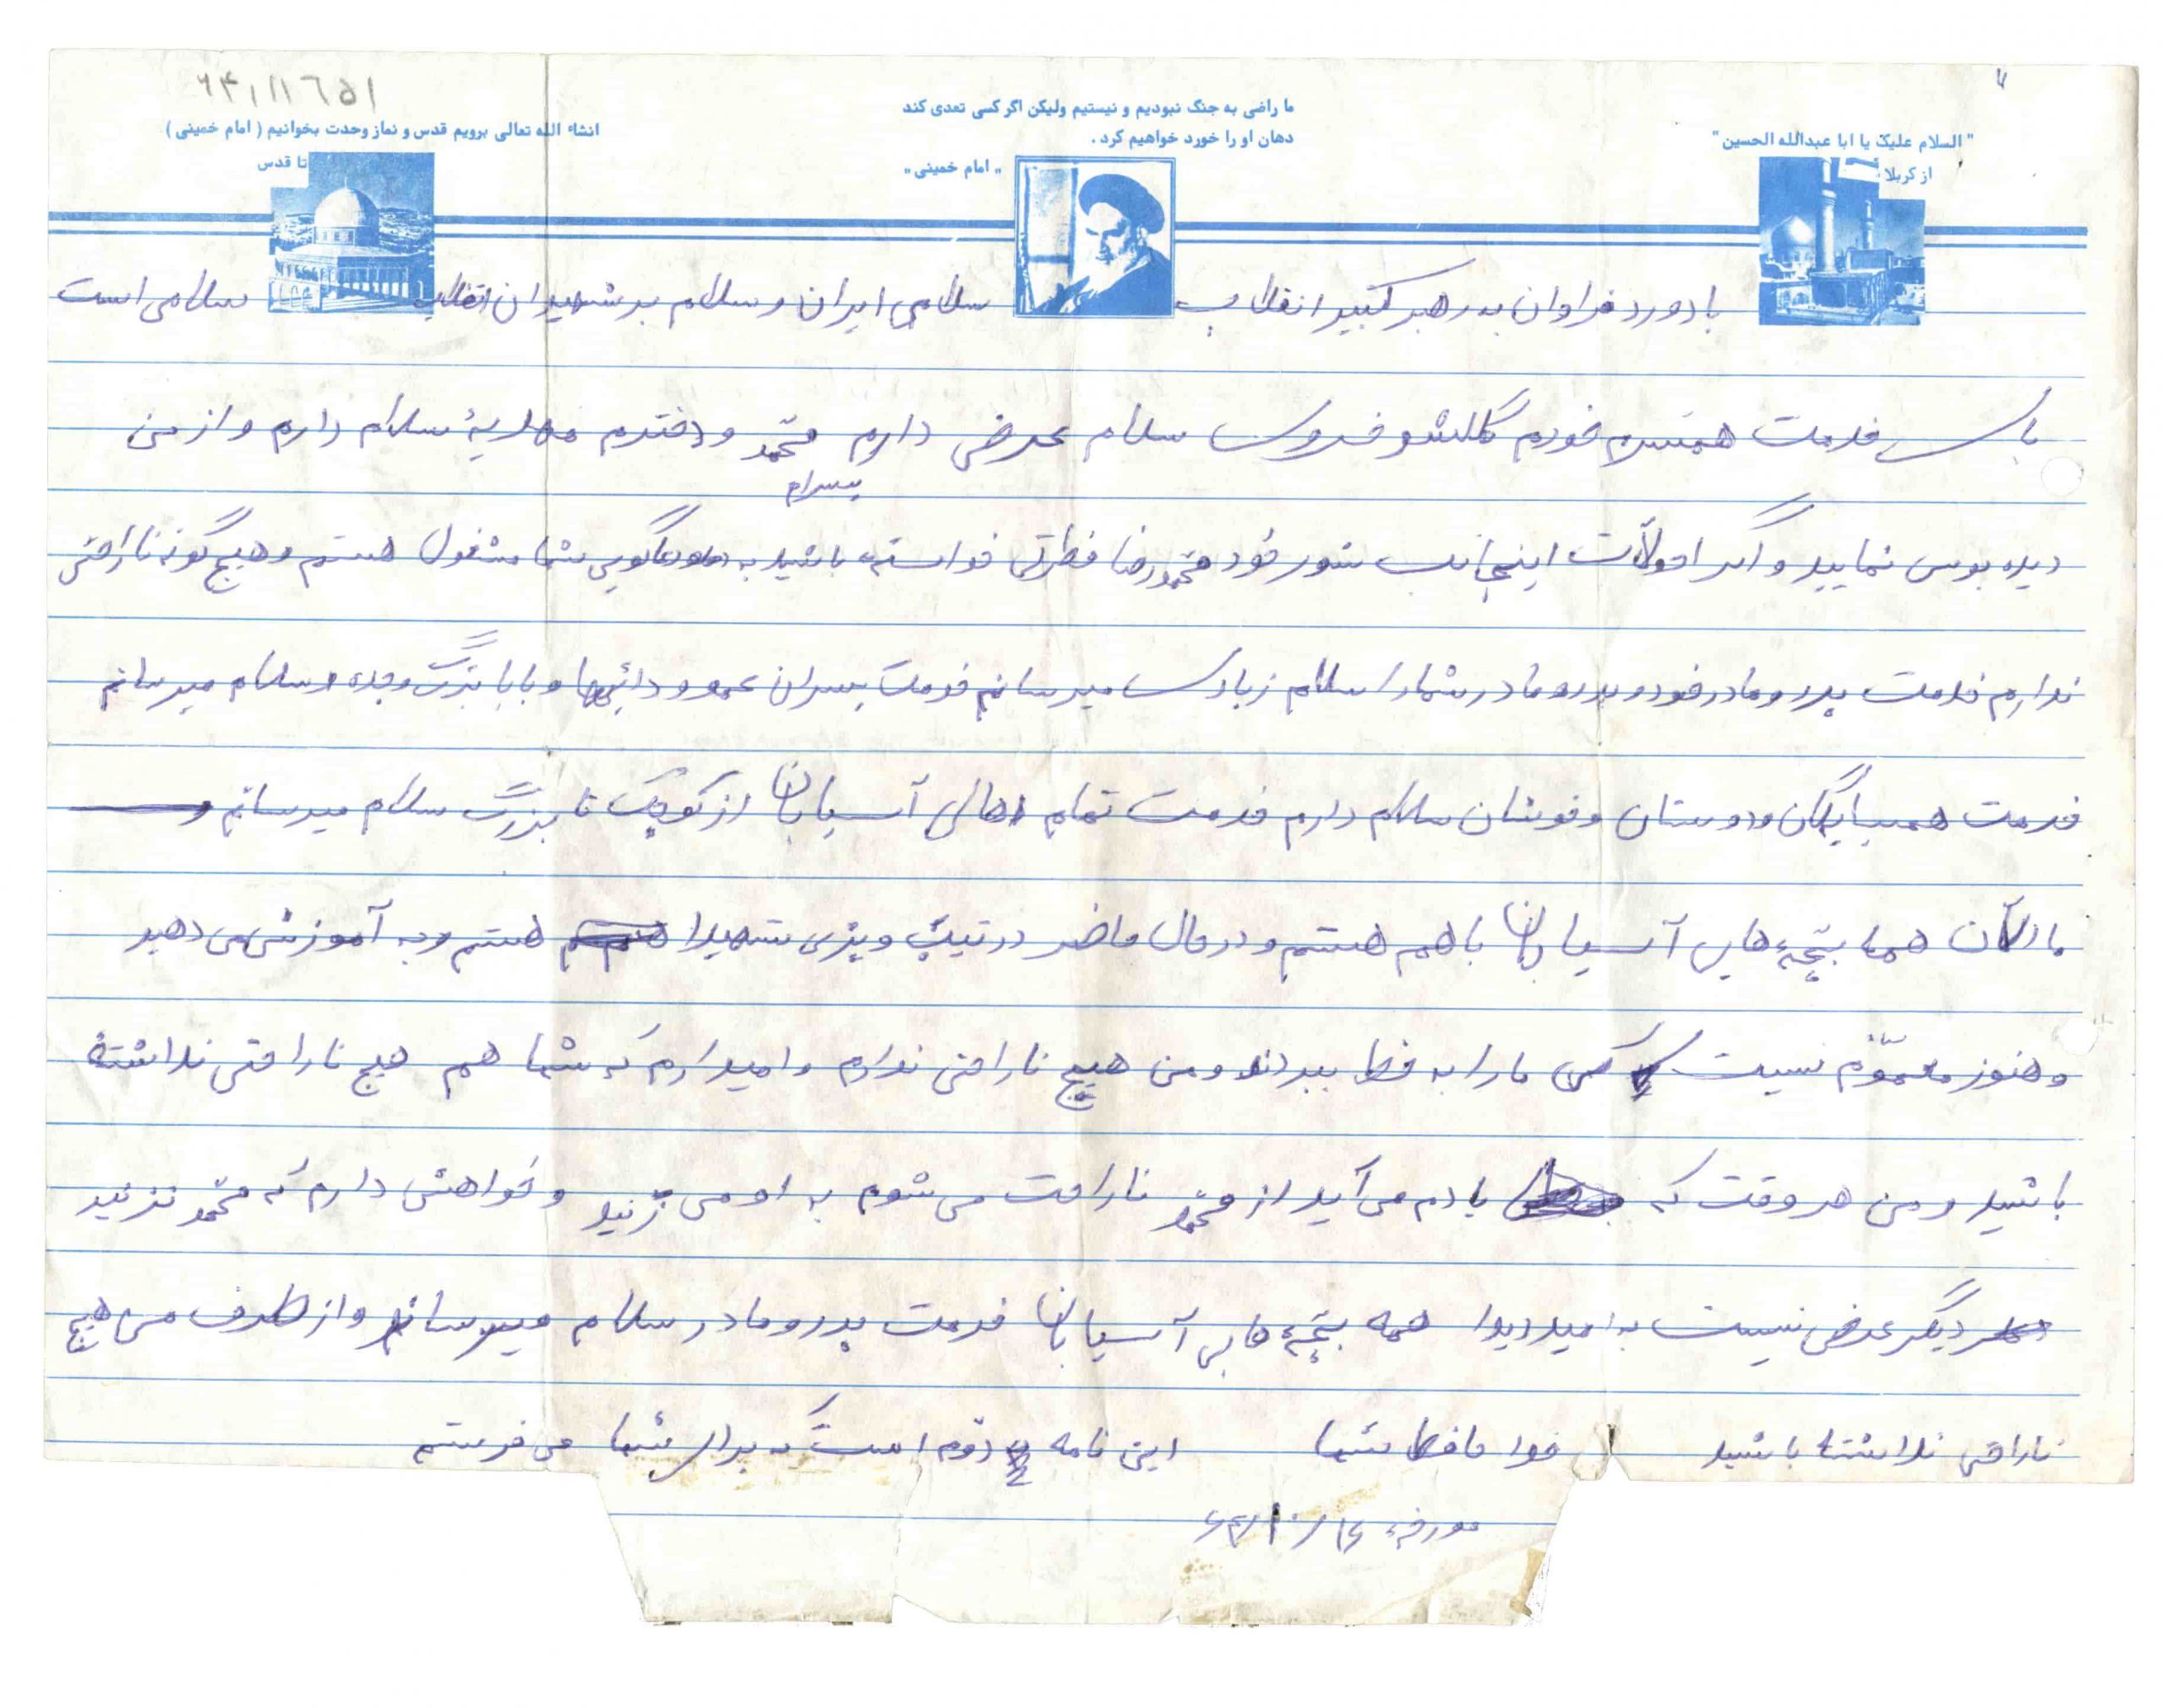 ۶۴۱۱۱۶۵۱
ما راضی به جنگ نبودیم و نیستیم ولیکن اگر کسی تعدی کند
دهان او را خورد خواهیم کرد .
"امام خمینی"
"السلام علیک یا ابا عبدالله الحسین"
از کربلا
انشاء الله تعالی برویم قدس و نماز وحدت بخوانیم ( امام خمینی )
تا قدس
با دورد فراوان به رهبر کبیر انقلاب سلامی ایران و سلام بر شهیدان انقلاب سلامی است
خدمت همسرم خودم سلام عرض دارم محمّد و دخترم سلام دارم و از من
پسرام
دیده بوس نمایید و اگر احولآت اینجانب شور خود محمدرضا خواسته باشید به دعاگویی شما مشغول هستم و هیچ گونه ناراحتی
ندارم خدمت پدر و مادر خود و پدر و مادر شما را سلام زیادی میرسانم خدمت پسران عمو و دائیها و بابا بزرگ وجده سلام میرسانم
خدمت همسایگان ودوستان وخوشان سلام دارم خدمت تمام اهالی آسیابان از کوچک تا بزرگ سلام میرسانم
ما الآن هما بچّه‌های آسیابان با هم هستم و در حال حاضر در تیپ ویژی شهیدا هستم و به آموزش می دهید
و هنوز نسیت کی ما را به خط ببراند و من هیچ ناراحتی ندارم و امیدارم که شما هم هیچ ناراحتی نداشته
باشید و من هر وقت که یادم می آید از محمّد ناراحت می شوم به او می زنید و خواهش دارم که محمّد نزنید
دیگر عرض نیست به امید دیدا همه بچّه های آسیابان خدمت پدر و مادر سلام میرسانم و از طرف من هیچ
ناراحتی نداشتا باشید خدا حافظ شما این نامه دوّم است که برای شما می فرستم
مورخه ۶۴/۱۰/۱۶